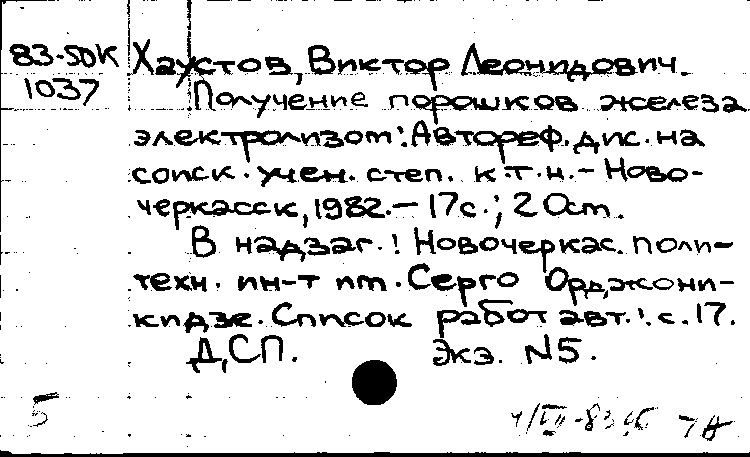 83-5ДК Хаустов, Виктор Леонидович.
1037 Получение порошков железа
электролизом: Автореф. дис. на
соиск. учен. степ. к.т.н. - Ново-
черкасск, 1982. - 17с.; 20см.
В надзаг.: Новочеркас. поли-
техн. ин-т им. Серго Орджони-
кидзе. Список работ авт.: с. 17.
ДСП. Экз. N5.
5